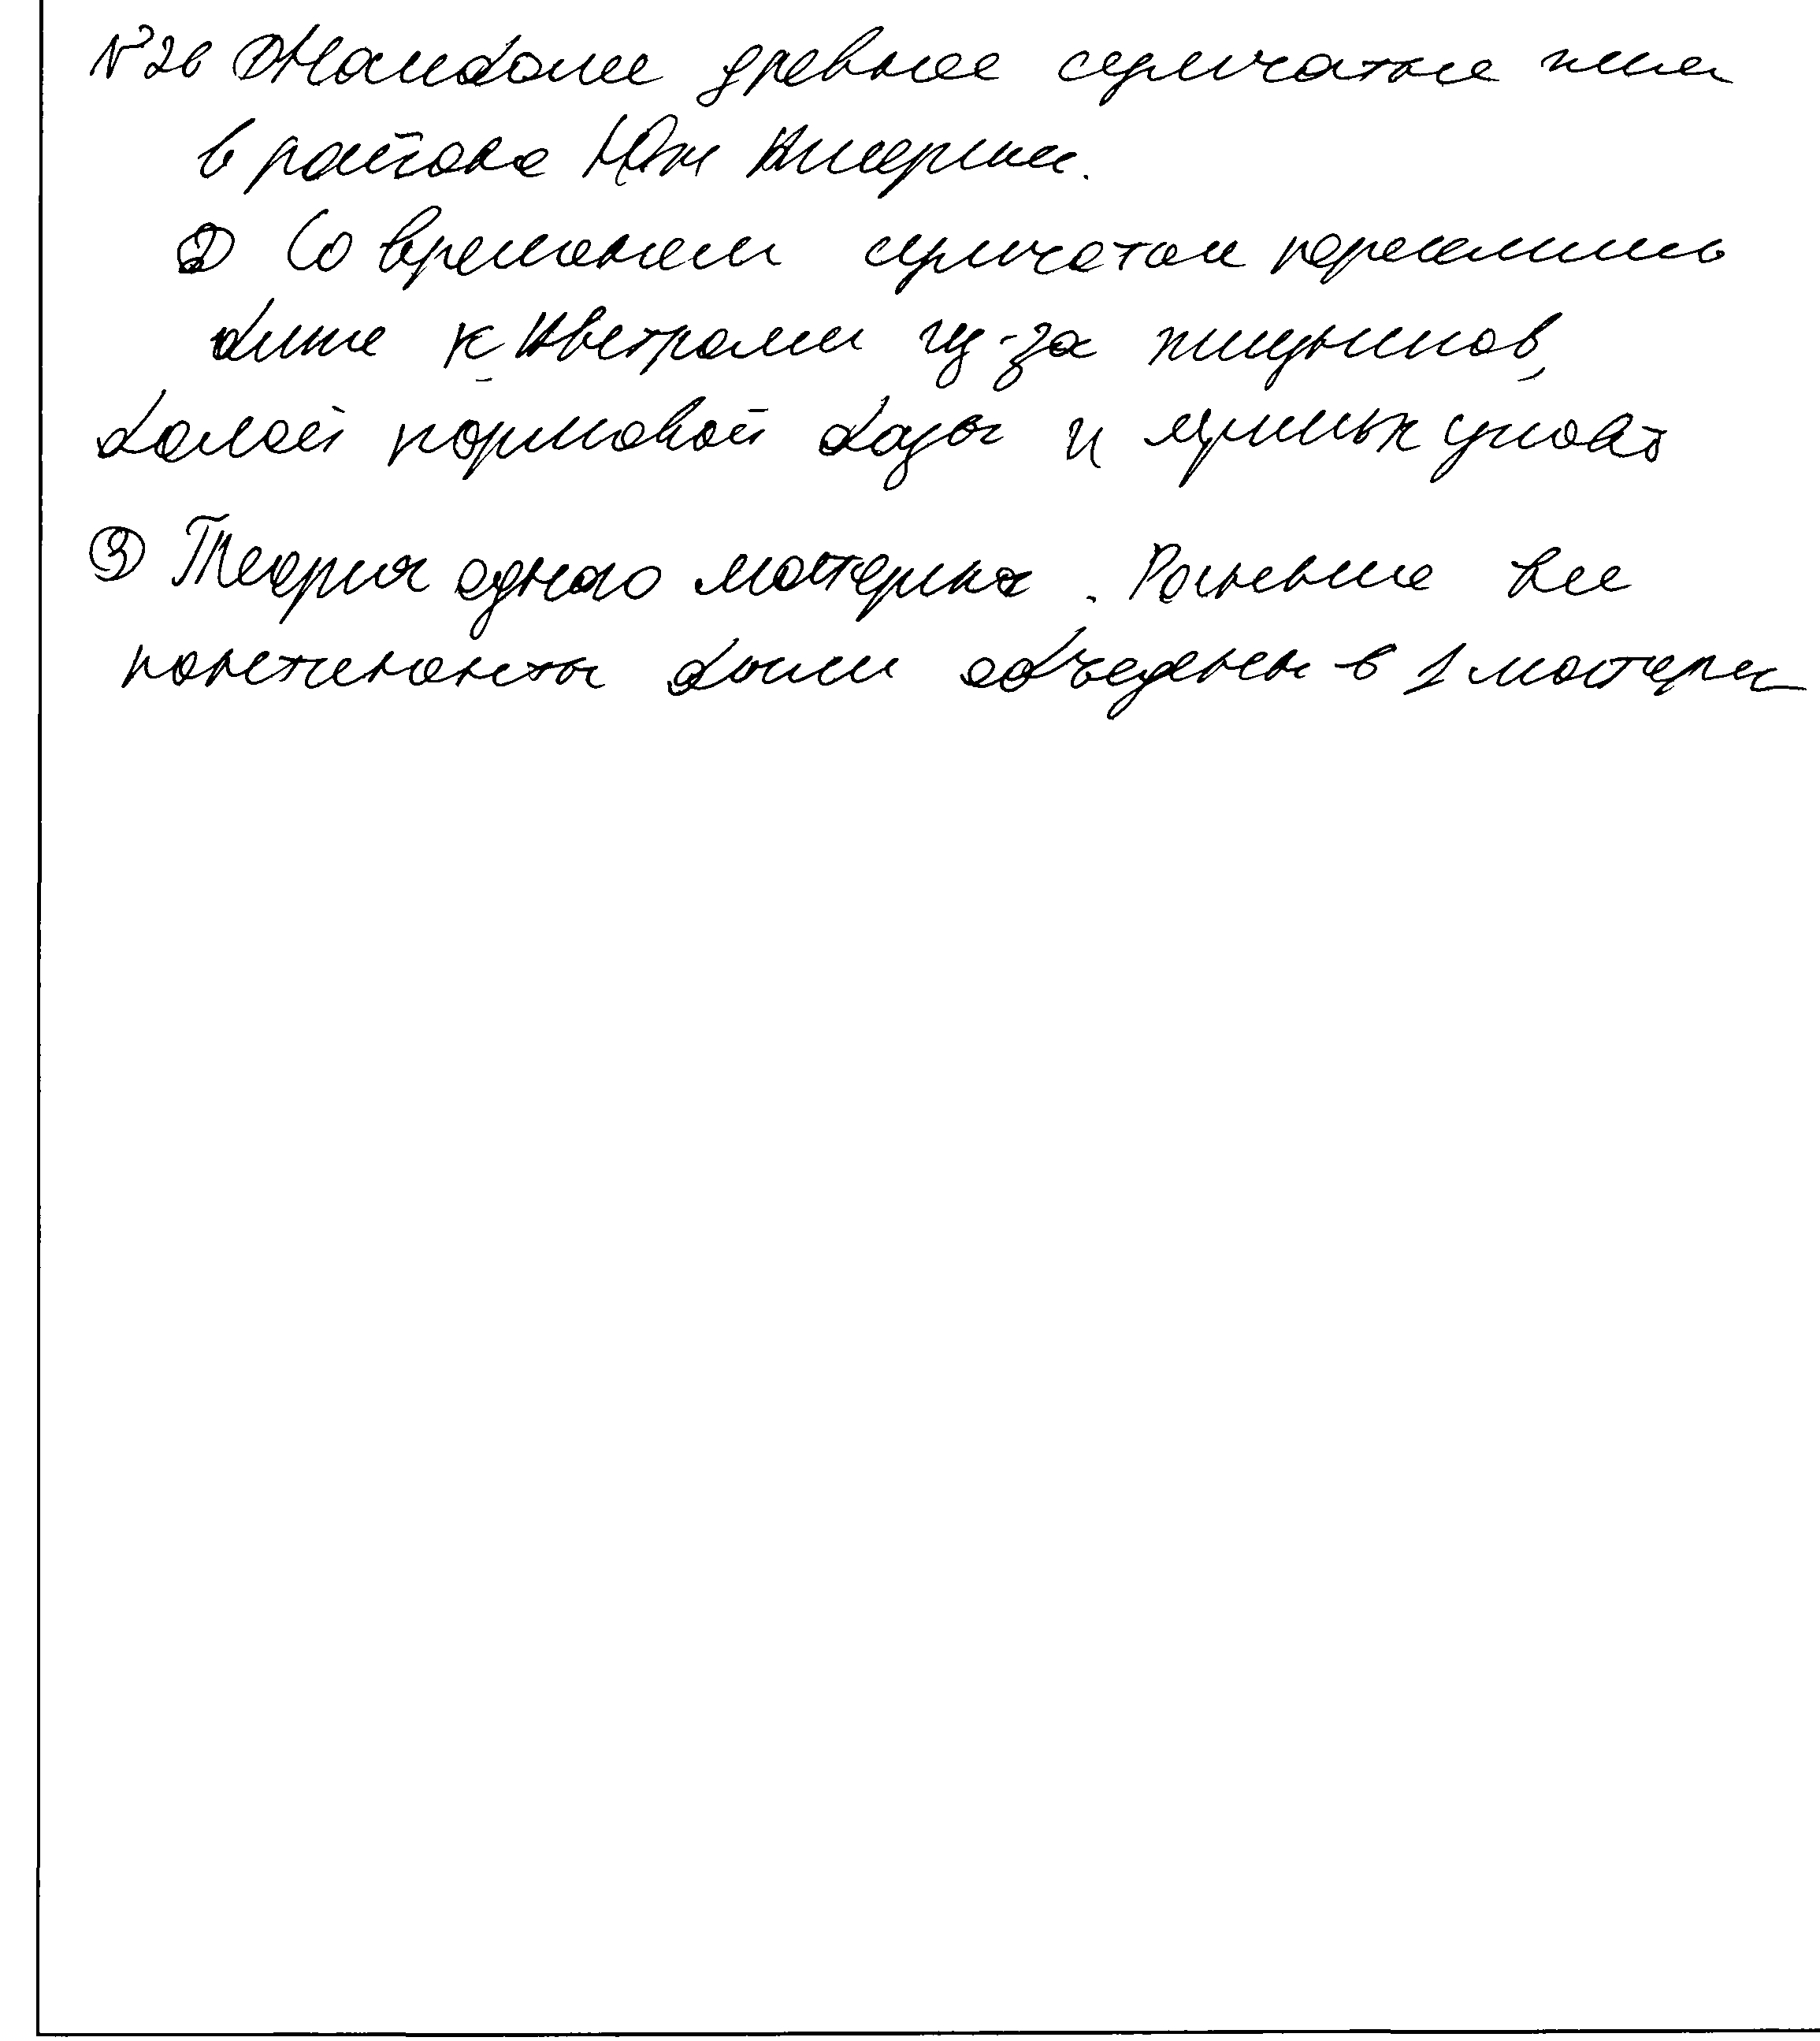 №26 ① Наиболее древние сумчатые жили
в районе Юж Америки.
② Со временем сумчатые переселились
ближе к Австралии из-за хищников,
более кормовой базы и лучших услов
③ Теория одного материка. Раньше все
континенты были объедены в 1 матери